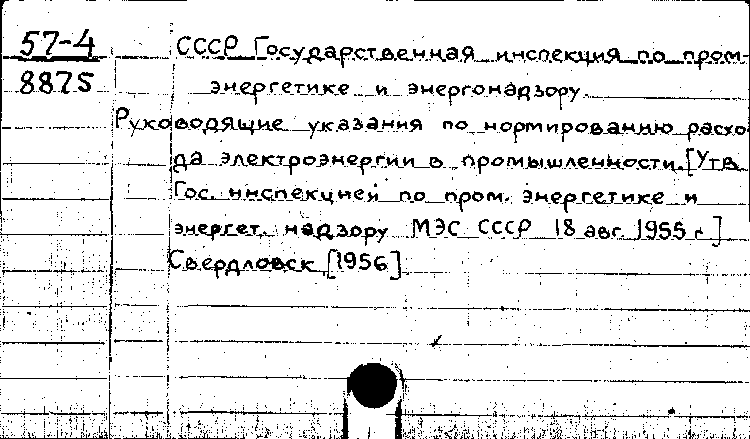 57-4
8875
СССР Государственная инспекция по пром-
энергетике и энергонадзору.
Руководящие указания по нормированию расхо
да электроэнергии в промышленности. [Утв.
Гос. инспекцией по пром. энергетике и
энергет. надзору МЭС СССР 18 авг. 1955 г.]
Свердловск [1956]